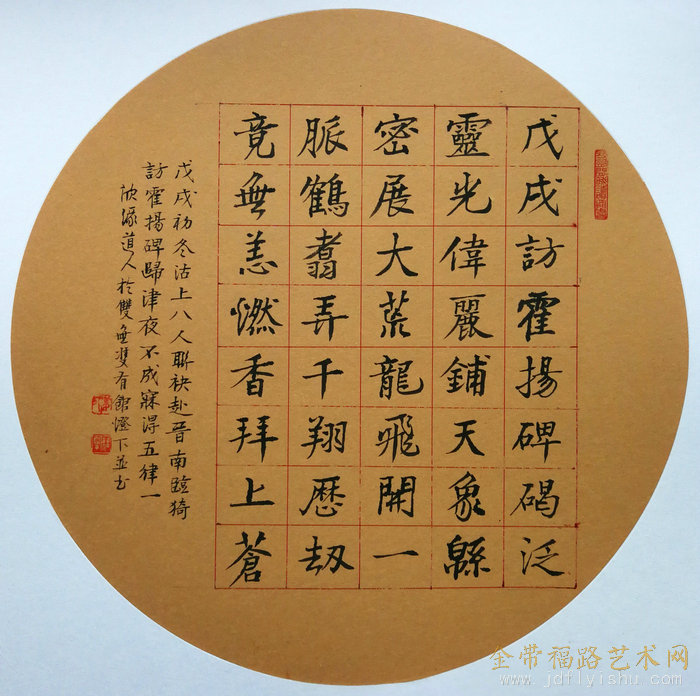 戊戌訪霍揚碑碣泛
靈光偉麗鋪天象緜
密展大荒龍飛開一
脈鶴翥弄千翔歷劫
竟無恙燃香拜上蒼
戊戌初冬沽上八人聯袂赴晉南臨猗
訪霍揚碑歸津夜不成寐得五律一
欣濠道人於雙無雙有館燈下並書
金带福路艺术网
www.jdflyishu.com